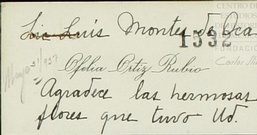 Luis Montes de Oca
1332
Ofelia Ortiz Rubio
Agradece las hermosas
flores que tuvo Ud.